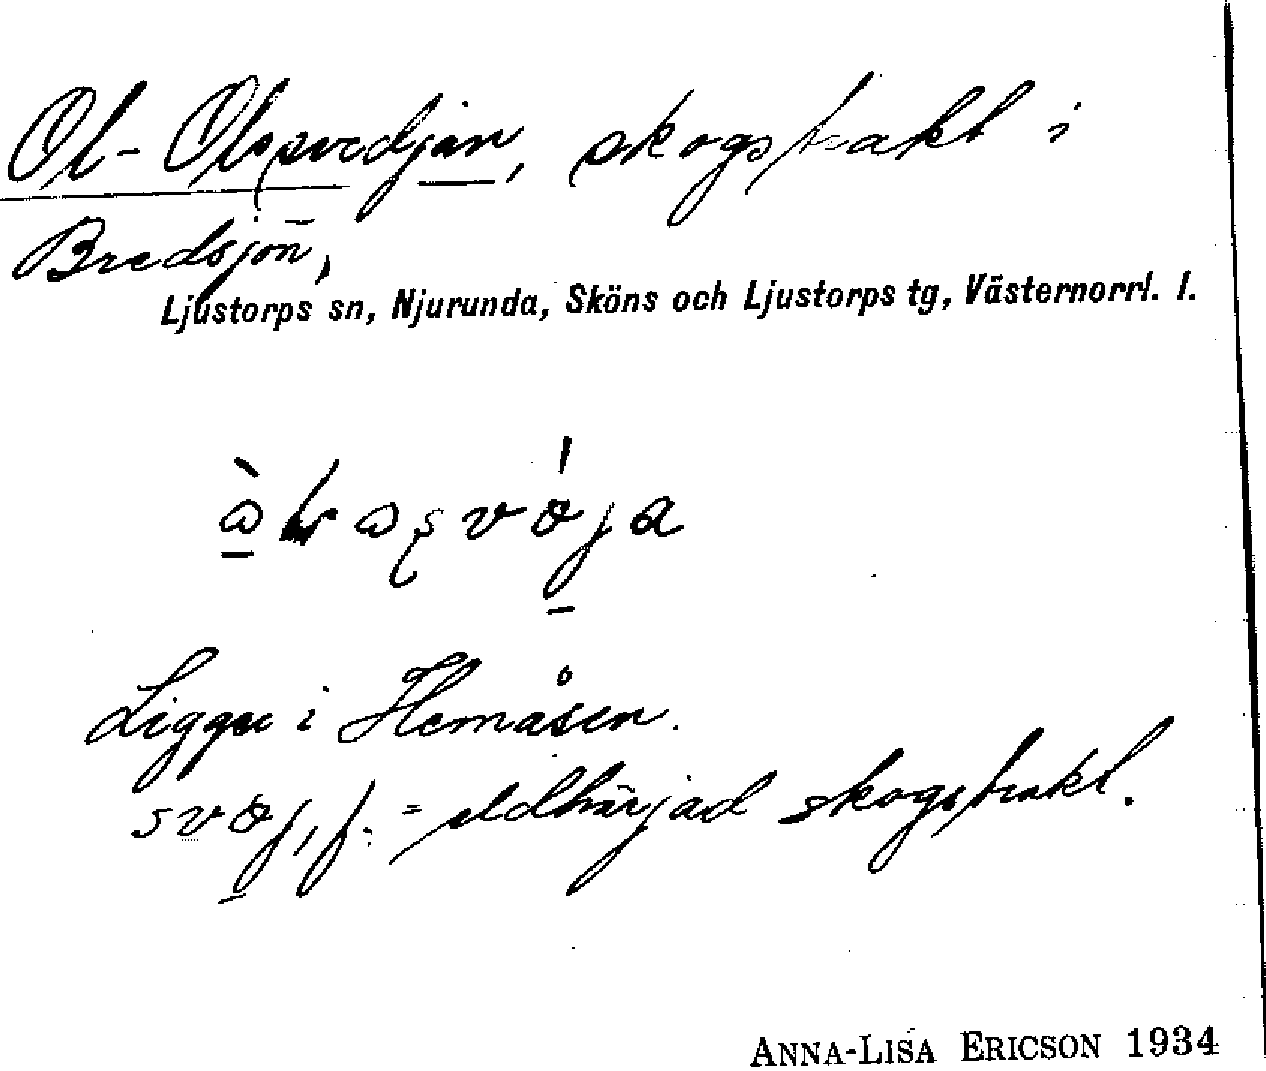 Ol-Olssvedjan, skogstrakt i
Bredsjön,
Ljustorps sn, Njurunda, Sköns och Ljustorps tg, Västernorrl. l.
Ligger i Hemåsen.
= eldhärjad skogstrakt.
ANNA-LISA ERICSON 1934